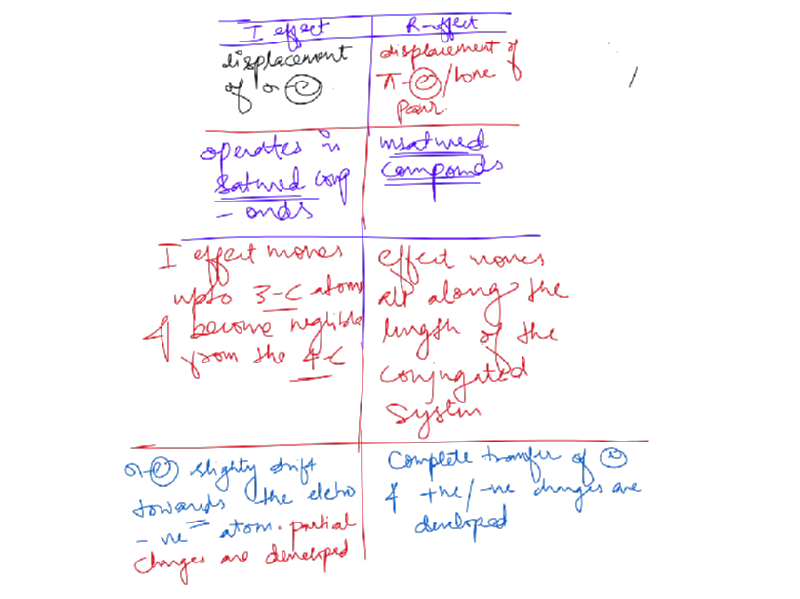 I effect
R-effect
displacement
of σ-e
displacement of
π-e/lone
pair.
operates in
satured comp
-onds
unsatured
compounds
I effect moves
upto 3-C atoms
& become neglible
from the 4-C
effect moves
all along the
length of the
conjugated
system
σ-e slighty shift
towards the eletro
-ve atom. partial
charges are developed
Complete transfer of e
& +ve/-ve charges are
developed